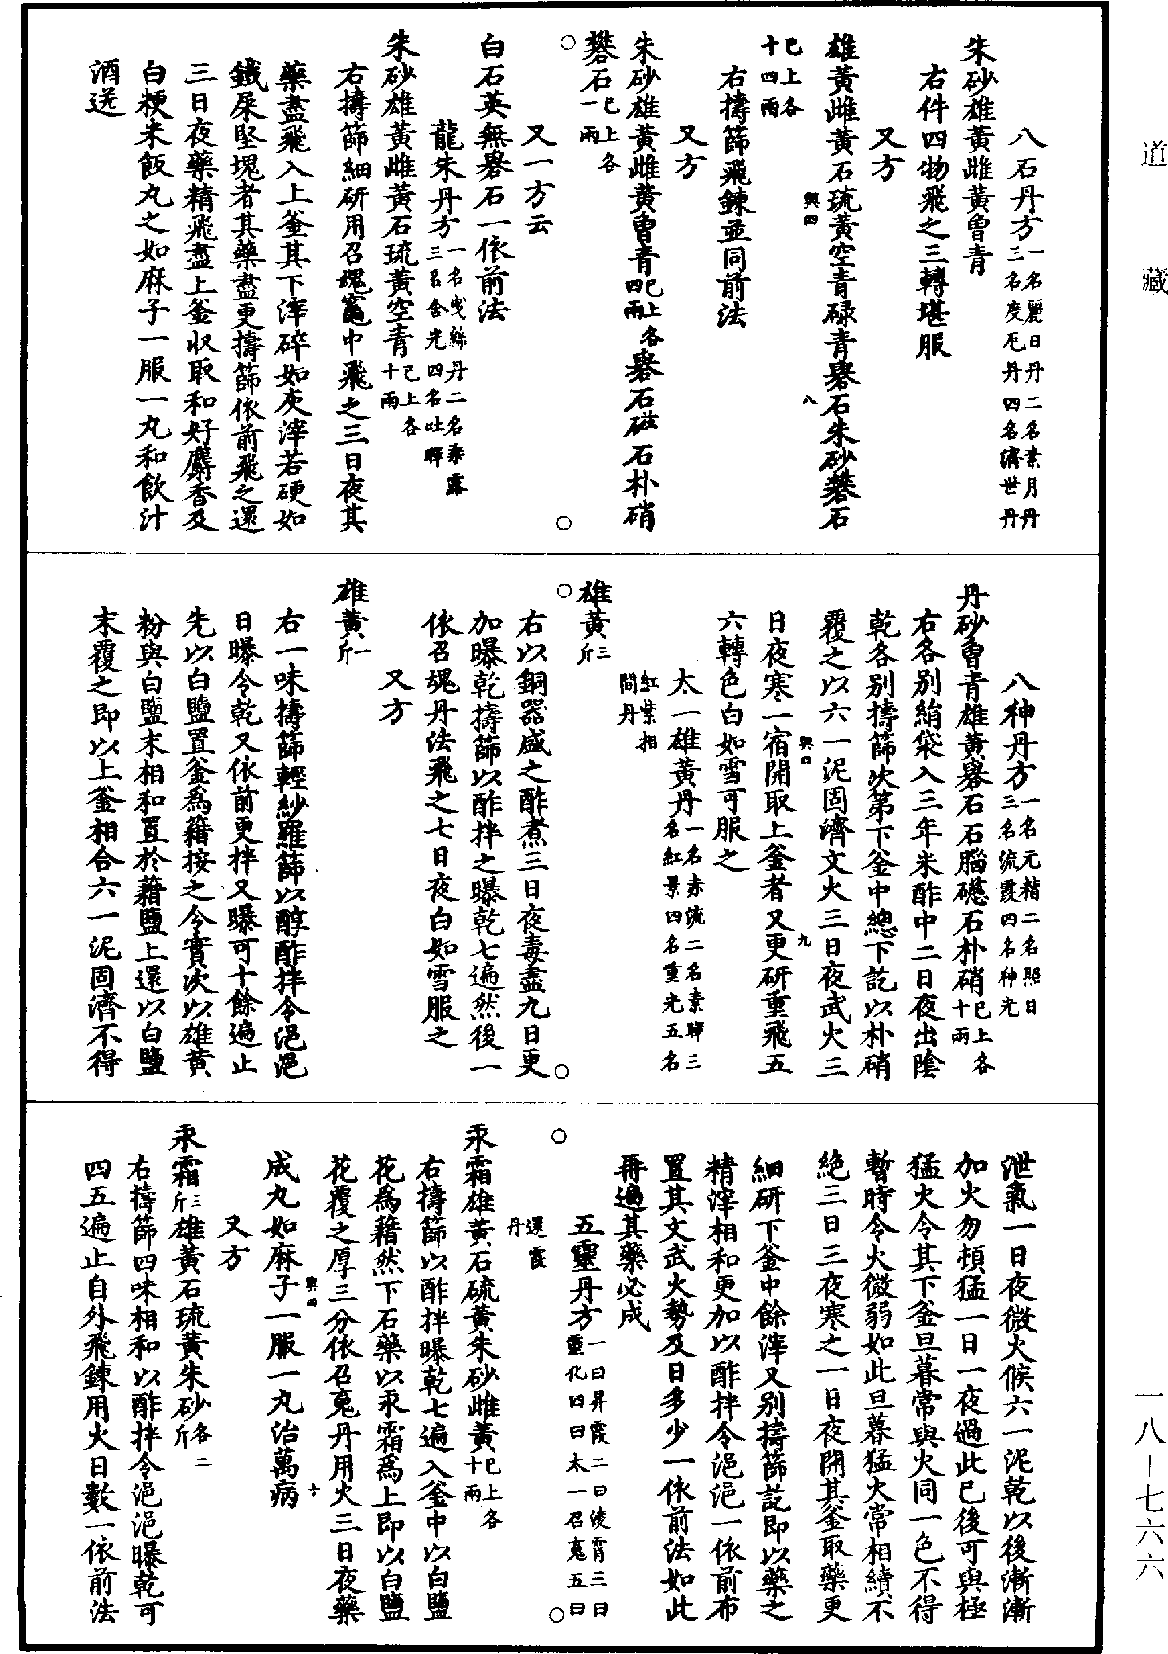 道藏
八石丹方一名麗日丹二名素月丹三名度厄丹四名濟世丹
朱砂雄黃雌黃曾青
右件四物飛之三轉堪服
又方
雄黃雌黃石琉黃空青碌青礜石朱砂礬石
已上各十四兩
右擣篩飛鍊並同前法
又方
朱砂雄黃雌黃曾青已上各四兩礜石磁石朴硝
礬石已上各一兩
又一方云
白石英無礜石一依前法
龍朱丹方一名曵絲丹二名乘露三名含光四名吐暉
朱砂雄黃雌黃石琉黃空青已上各十兩
右擣篩細研用召魂竈中飛之三日夜其
藥盡飛入上釜其下滓碎如灰滓若硬如
鐵屎堅塊者其藥盡更擣篩依前飛之還
三日夜藥精飛盡上釜收取和好麝香及
白粳米飯丸之如麻子一服一丸和飲汁
酒送
八神丹方一名元精二名照日三名流霞四名神光
丹砂曾青雄黃礜石石腦磁石朴硝已上各十兩
右各別絹袋入三年米酢中二日夜出陰
乾各別擣篩次第下釜中總下訖以朴硝
覆之以六一泥固濟文火三日夜武火三
日夜寒一宿開取上釜者又更研重飛五
六轉色白如雪可服之
太一雄黃丹一名赤流二名素暉三名紅景四名重光五名
紅葉相間丹
雄黃三斤
右以銅器盛之酢煮三日夜毒盡九日更
加曝乾擣篩以酢拌之曝乾七遍然後一
依召魂丹法飛之七日夜白如雪服之
又方
雄黃一斤
右一味擣篩輕紗羅篩以醇酢拌令浥浥
日曝令乾又依前更拌又曝可十餘遍止
先以白鹽置釜爲籍按之令實次以雄黃
粉與白鹽末相和置於藉鹽上還以白鹽
末覆之即以上釜相合六一泥固濟不得
泄氣一日夜微火候六一泥乾以後漸漸
加火勿頓猛一日一夜過此已後可與極
猛火令其下釜旦暮常與火同一色不得
暫時令火微弱如此旦暮猛火常相續不
絕三日三夜寒之一日夜開其釜取藥更
細研下釜中餘滓又別擣篩訖即以藥之
精滓相和更加以酢拌令浥浥一依前布
置其文武火勢及日多少一依前法如此
再遍其藥必成
五靈丹方一曰昇霞二曰凌霄三曰重化四曰太一召䰟五曰
還霞丹
汞霜雄黃石硫黃朱砂雌黃已上各十兩
右擣篩以酢拌曝乾七遍入釜中以白鹽
花爲藉然下石藥以汞霜爲上即以白鹽
花覆之厚三分依召䰟丹用火三日夜藥
成丸如麻子一服一丸治萬病
又方
汞霜三斤雄黃石琉黃朱砂各二斤
右擣篩四味相和以酢拌令浥浥曝乾可
四五遍止自外飛鍊用火日數一依前法
興四
八
興四
九
興四
十
一八—七六六